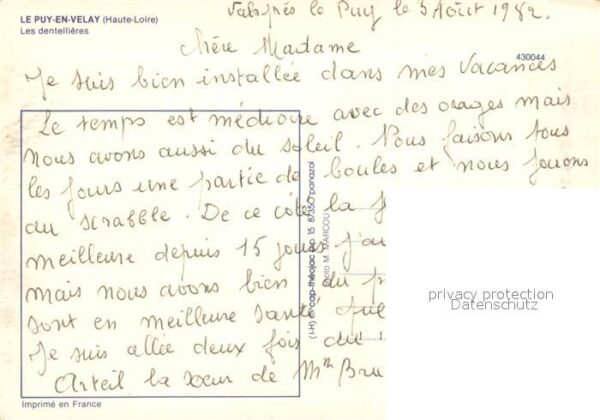 LE PUY-EN-VELAY (Haute-Loire)
Les dentellières
Vals près le Puy le 5 Août 1982.
Chère Madame
430044
Je suis bien installée dans mes vacances
Le temps est médiocre avec des orages mais
nous avons aussi du soleil. Nous faisons tous
les jours une partie de boules et nous jouons
au scrabble. De ce côté la
meilleure depuis 15 jours j'au
mais nous avons bien du p
sont en meilleure santé que
Je suis allée deux fois du
Arteil la sœur de Mme Bru
(I-H) cap-théojac bp. 15 87350 panazol
Photo M. MARCOU
privacy protection
Datenschutz
Imprimé en France